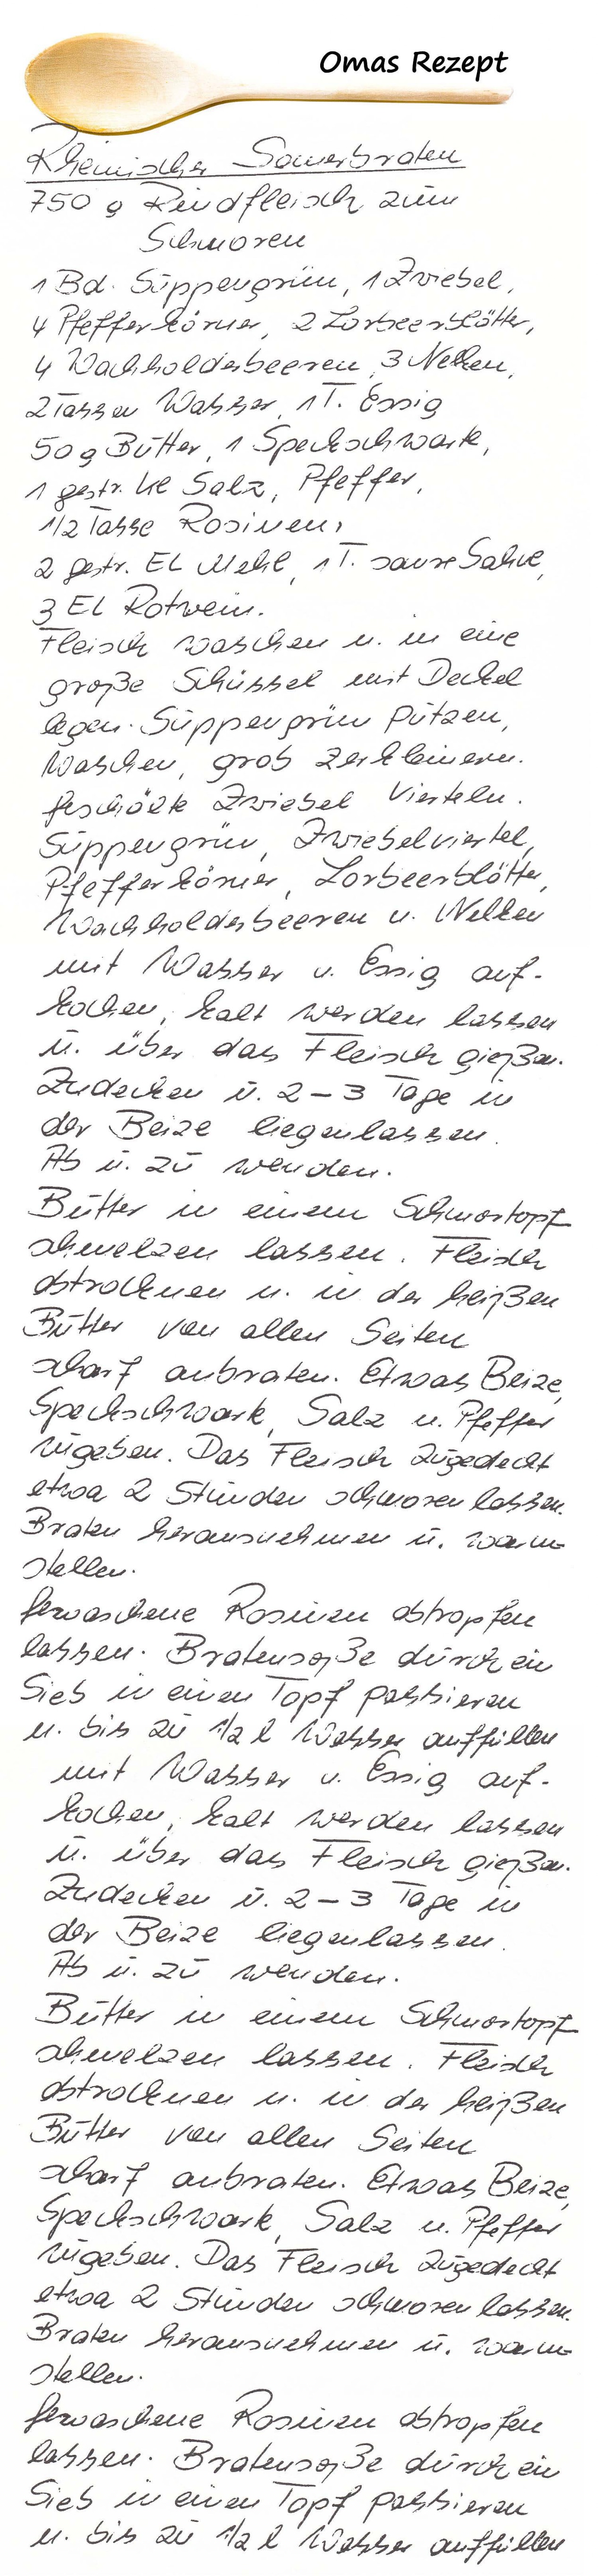 Omas Rezept
Rheinischer Sauerbraten
750 g Rindfleisch zum
Schmoren
1 Bd. Suppengrün, 1 Zwiebel,
4 Pfefferkörner, 2 Lorbeerblätter,
4 Wachholderbeeren, 3 Nelken,
2 Tassen Wasser, 1 T. Essig
50 g Butter, 1 Speckschwarte,
1 gestr. Tel Salz, Pfeffer,
1/2 Tasse Rosinen,
2 gestr. EL Mehl, 1 T. saure Sahne,
3 EL Rotwein.
Fleisch waschen u. in eine
große Schüssel mit Deckel
legen. Suppengrün putzen,
waschen, grob zerkleinern.
Geschälte Zwiebel vierteln.
Suppengrün, Zwiebelviertel,
Pfefferkörner, Lorbeerblätter,
Wachholderbeeren u. Nelken
mit Wasser u. Essig auf-
kochen, kalt werden lassen
u. über das Fleisch gießen.
Zudecken u. 2-3 Tage in
der Beize liegenlassen.
Ab u. zu wenden.
Butter in einem Schmortopf
schmelzen lassen. Fleisch
abtrocknen u. in der heißen
Butter von allen Seiten
scharf anbraten. Etwas Beize,
Speckschwark, Salz u. Pfeffer
zugeben. Das Fleisch zugedeckt
etwa 2 Stunden schmoren lassen.
Braten herausnehmen u. warm-
stellen.
Gewaschene Rosinen abtropfen
lassen. Bratensoße durch ein
Sieb in einen Topf passieren
u. bis zu 1/2 l Wasser auffüllen
mit Wasser u. Essig auf-
kochen, kalt werden lassen
u. über das Fleisch gießen.
Zudecken u. 2-3 Tage in
der Beize liegenlassen.
Ab u. zu wenden.
Butter in einem Schmortopf
schmelzen lassen. Fleisch
abtrocknen u. in der heißen
Butter von allen Seiten
scharf anbraten. Etwas Beize,
Speckschwark, Salz u. Pfeffer
zugeben. Das Fleisch zugedeckt
etwa 2 Stunden schmoren lassen.
Braten herausnehmen u. warm-
stellen.
Gewaschene Rosinen abtropfen
lassen. Bratensoße durch ein
Sieb in einen Topf passieren
u. bis zu 1/2 l Wasser auffüllen